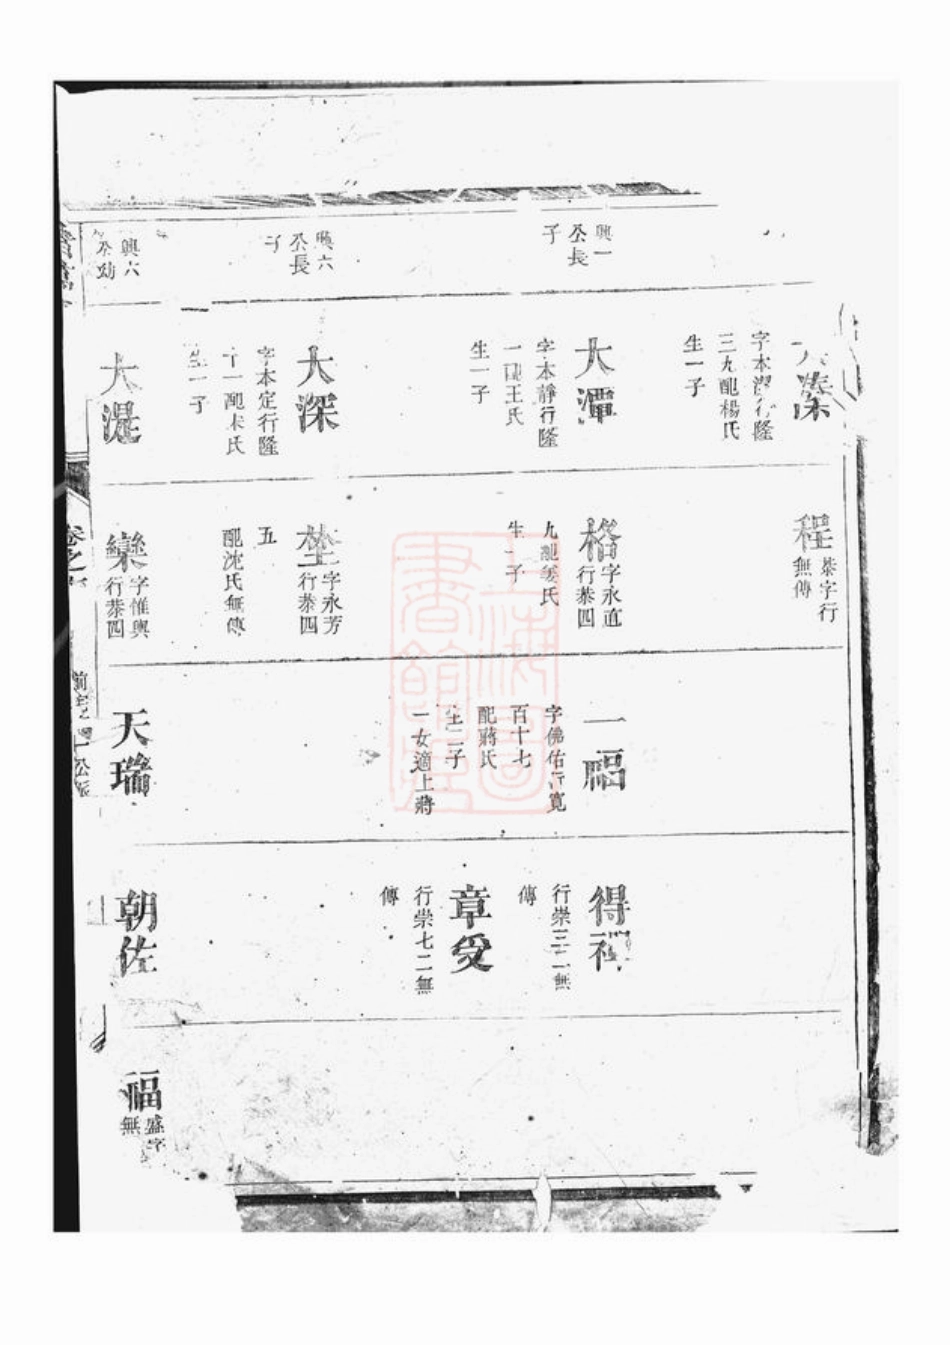 興一
公長
子
興六
公長
子
興六
公幼
三九配楊氏
生一子
大潭
字本靜行隆
一配王氏
生一子
大深
字本定行隆
十一配朱氏
生一子
大湜
程
恭字行
無傳
格
字永直
行恭四
九配姜氏
生一子
字永芳
行恭四
五
配沈氏無傳
欒
字惟輿
行恭四
一福
字佛佑行寬
百十七
配蔣氏
生二子
一女適上蔣
天瑞
得
行崇三二無
傳
章受
行崇七二無
傳
朝佐
福
盛字
無
卷之
上海圖
書館藏